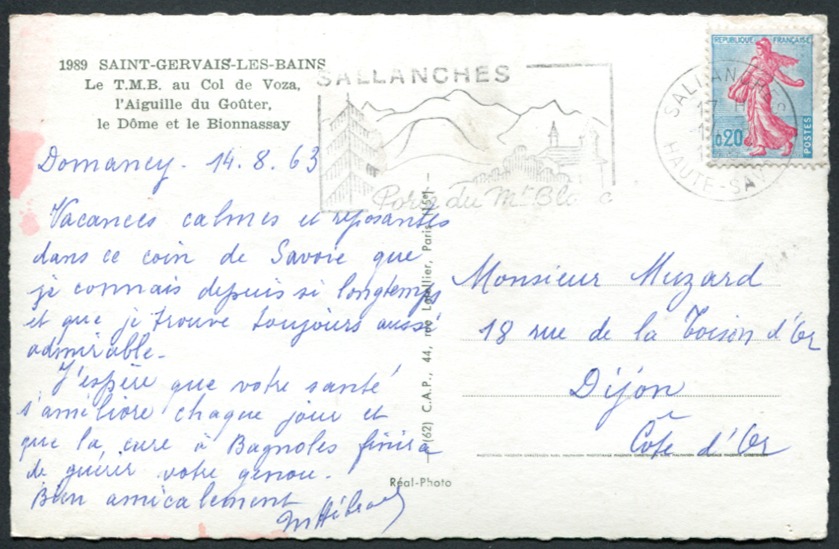 1989 SAINT-GERVAIS-LES-BAINS
Le T.M.B. au Col de Voza,
l'Aiguille du Goûter,
le Dôme et le Bionnassay
SALLANCHES
Porte du Mt Blanc
REPUBLIQUE FRANÇAISE
0,20
POSTES
HAUTE-SA
Domancy. 14.8.63
Vacances calmes et reposantes
dans ce coin de Savoie que
je connais depuis si longtemps
et que je trouve toujours aussi
admirable.
J'espère que votre santé
s'améliore chaque jour et
que la cure à Bagnoles finira
de guérir votre genou.
Bien amicalement
Monsieur Muzard
18 rue de la Toison d'Or
Dijon
Côte d'Or
(62) C.A.P., 44, rue Paris
Réal-Photo